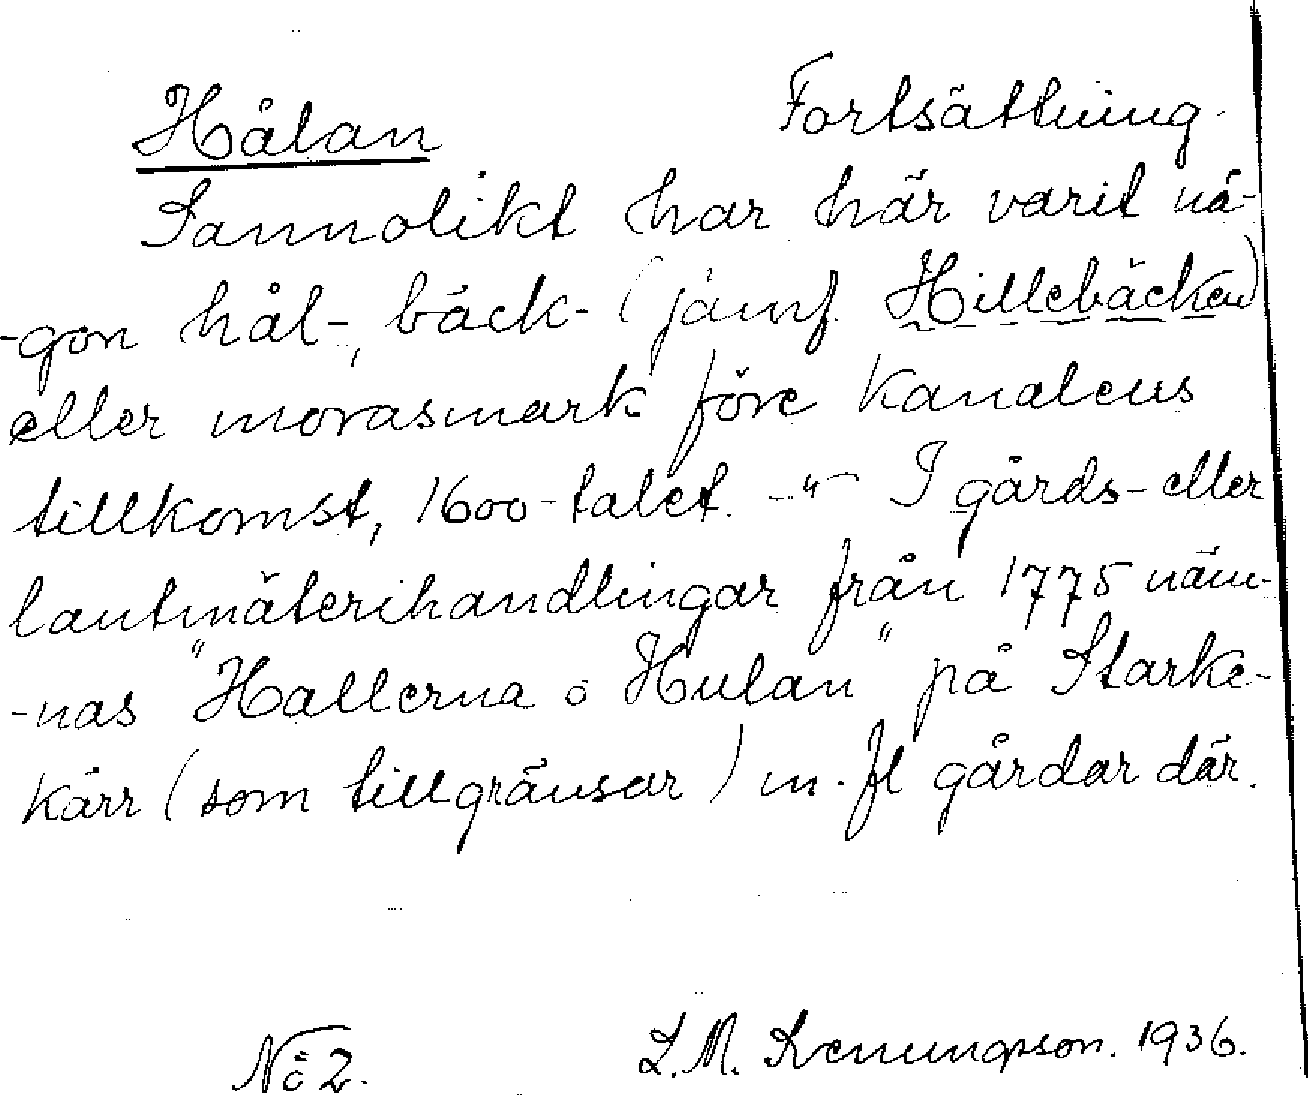 Hålan Fortsättning.
Sannolikt har här varit nå-
-gon hål-, bäck- (jämf. Hillebäcken)
eller morasmark före Kanalens
tillkomst, 1600-talet. -"- I gårds- eller
lantmäterihandlingar från 1775 näm-
-nas "Hallerna o Hulan" på Starke-
kärr (som tillgränsar) m. fl gårdar där.
No 2. L. M. 1936.